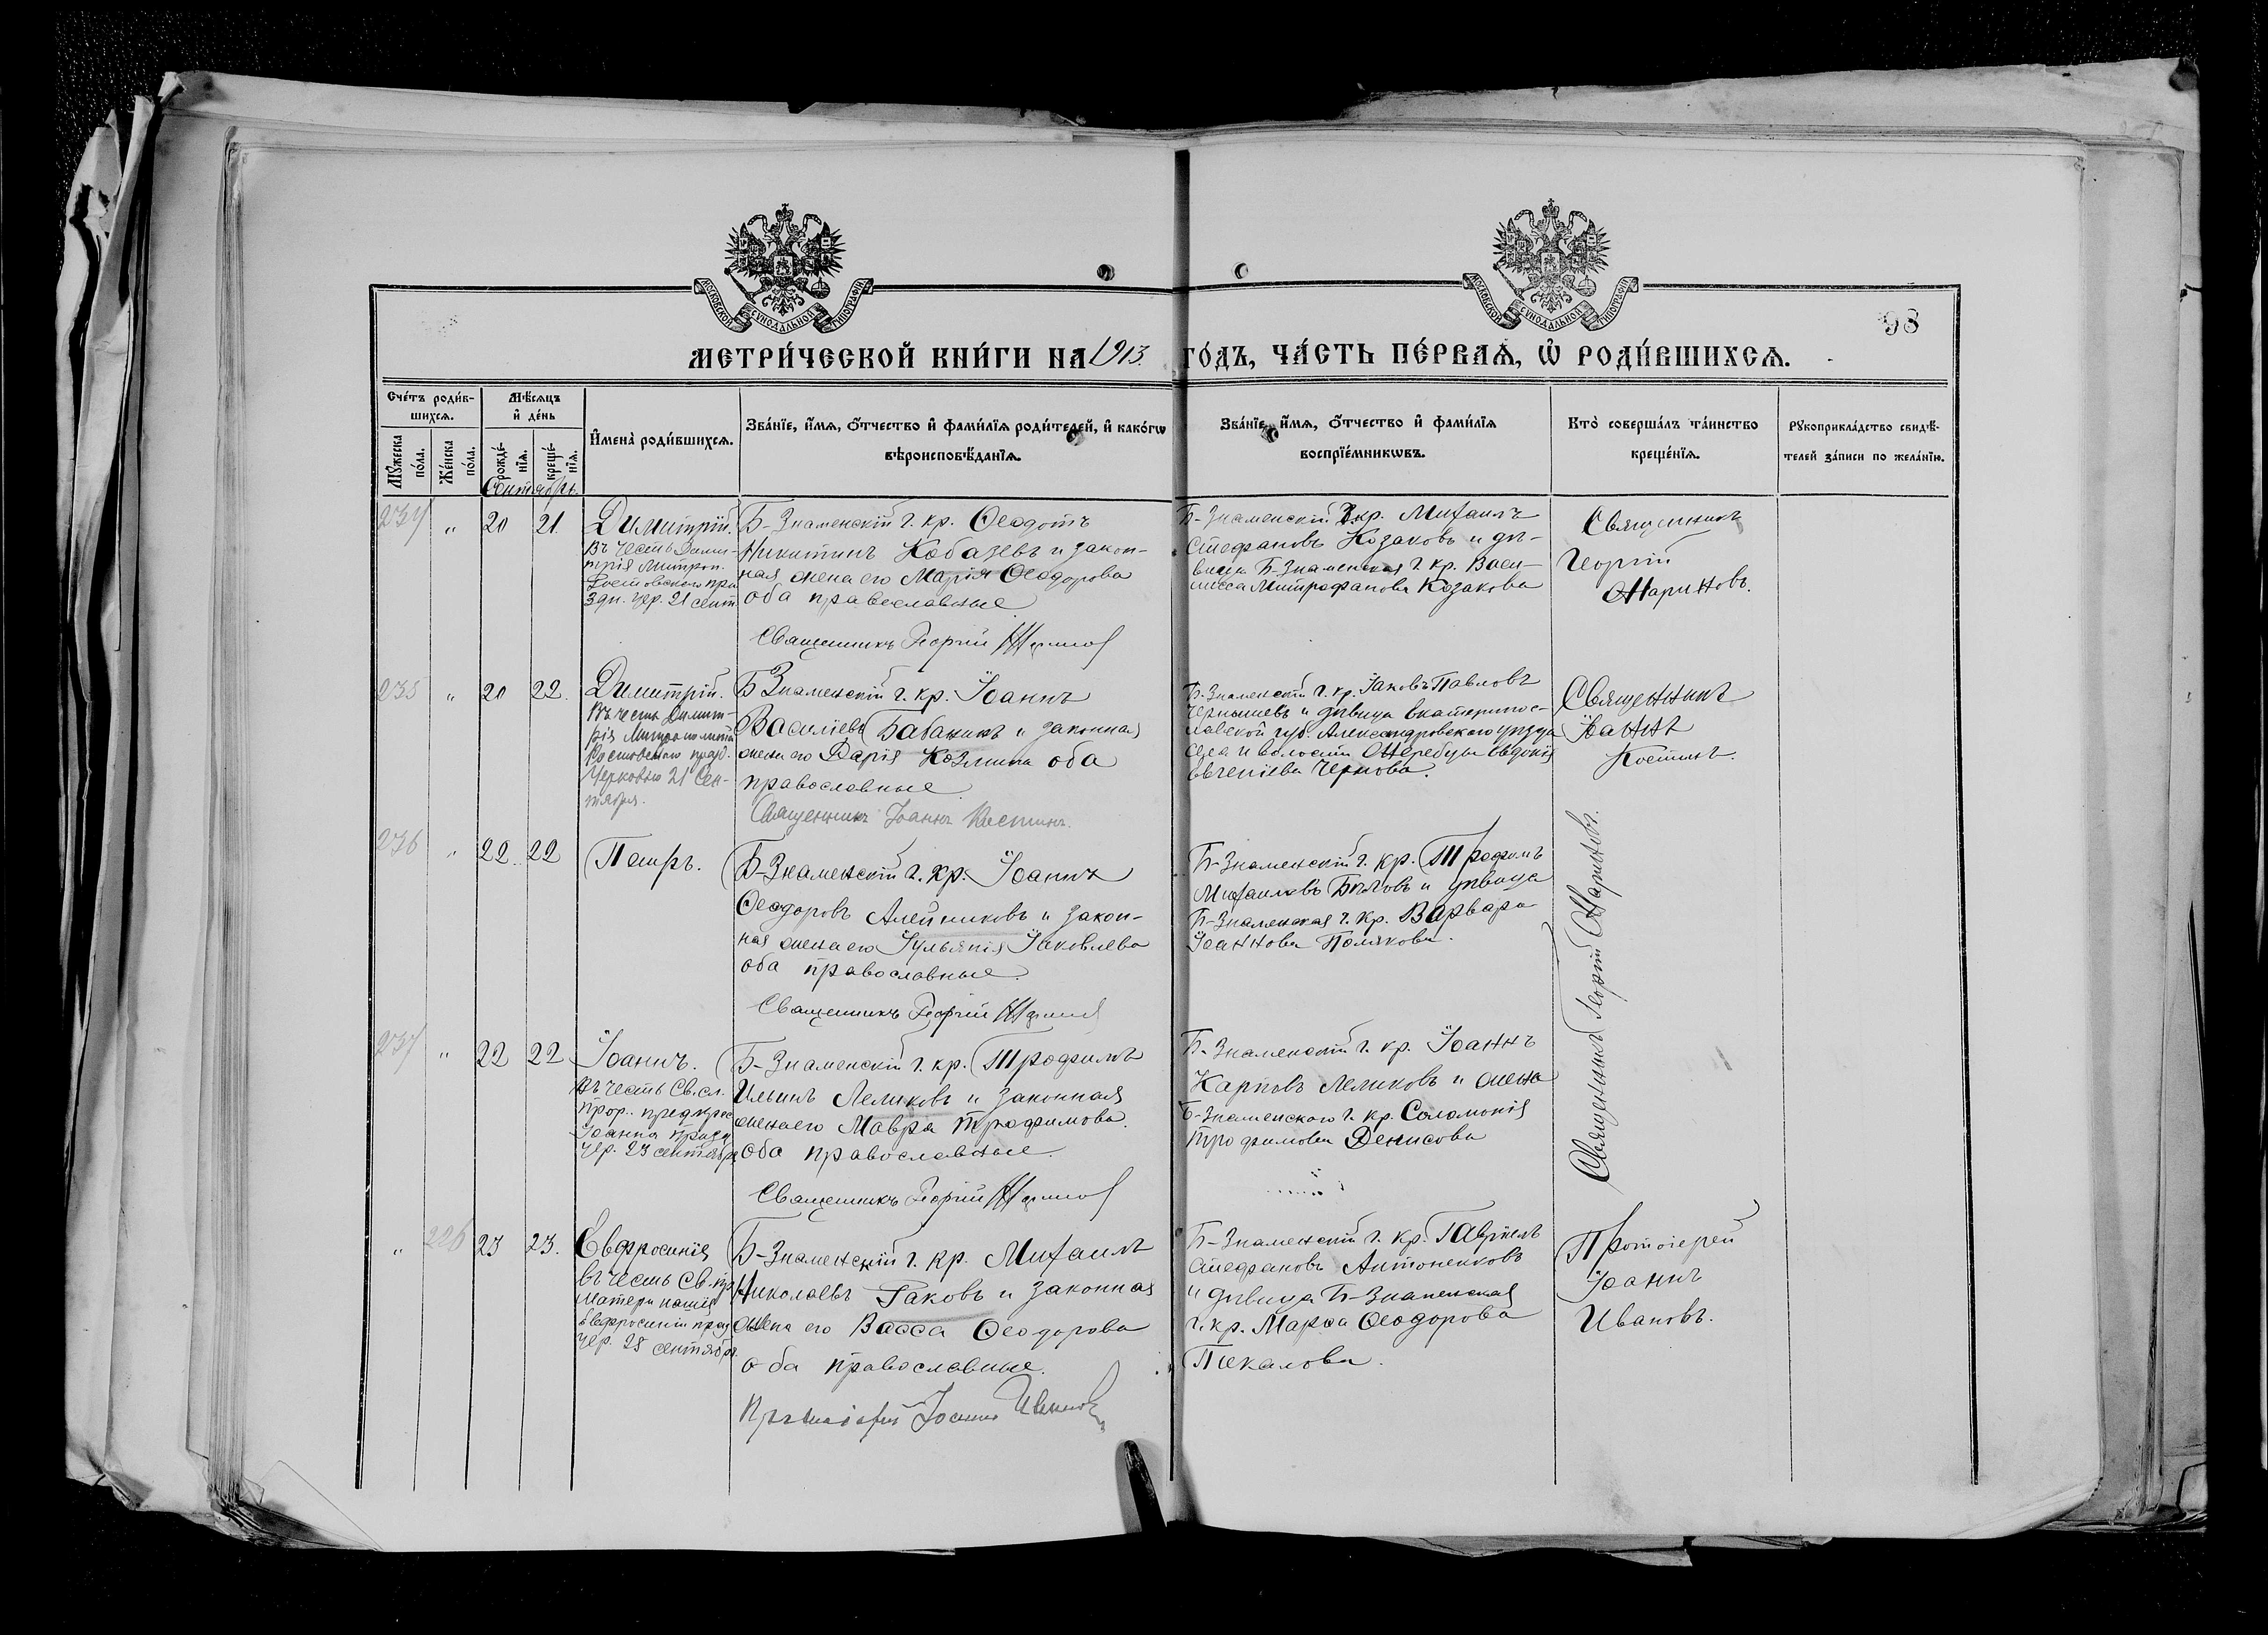 МОСКОВСКОЙ СѴНОДАЛЬНОЙ ТИПОГРАФІИ
МОСКОВСКОЙ СѴНОДАЛЬНОЙ ТИПОГРАФІИ
98
МЕТРИ́ЧЕСКОЙ КНИ́ГИ НА 1913. ГО́ДЪ, ЧА́СТЬ ПЕ́РВАѦ, Ѡ҆ РОДИ́ВШИХСѦ.
Сче́тъ роди́в-
шихсѧ.
Мꙋ́жеска по́ла.
Же́нска по́ла.
Мѣ́сѧцъ
и҆ де́нь
рожде́-
нїѧ.
креще́-
нїѧ.
И҆мена̀ роди́вшихсѧ.
Зва́нїе, и҆́мѧ, ѻ҆́тчество и҆ фами́лїѧ роди́телей, и҆ како́гѡ
вѣроисповѣ́данїѧ.
Зва́нїе, и҆́мѧ, ѻ҆́тчество и҆ фами́лїѧ
воспрїе́мникѡвъ.
Кто̀ соверша́лъ та́инство
креще́нїѧ.
Рꙋкоприкла́дство свидѣ́-
телей за́писи по жела́нїю.
Сентябрь.
234 " 20 21
Димитрій.
Въ честь Дими-
трія Митроп.
Ростовскаго пра
здн. цер. 21 сент.
Б-Знаменскій г. кр. Ѳеодотъ
Никитинъ Кобазевъ и закон-
ная жена его Марія Ѳеодорова
оба православные
Священникъ Георгій
Б-Знаменскій г. кр. Михаилъ
Стефановъ Козаковъ и дѣ-
вица Б-Знаменская г. кр. Васи-
лисса Митрофанова Козакова
Священникъ
Георгій
Мариновъ.
235 " 20 22.
Димитрій.
Въ честь Димит-
рія Митрополита
Ростовскаго празд.
Церковью 21 Сен-
тября.
Б Знаменскій г. кр. Іоаннъ
Василіевъ Бабанинъ и законная
жена его Дарія Козмина оба
православные
Священникъ Іоаннъ Костинъ.
Б-Знаменскій г. кр. Іаковъ Павловъ
Чернышевъ и дѣвица Екатеринос-
лавской губ. Александровскаго уѣзда
села и волости Жеребца Евдокія
Евгеніева Чернова.
Священникъ
Іоаннъ
Костинъ.
236 " 22. 22
Петръ.
Б-Знаменскій г. кр. Іоаннъ
Ѳеодоровъ Алейниковъ и закон-
ная жена его Іуліанія Іаковлева
оба православные.
Священникъ Георгій
Б-Знаменскій г. кр. Трофимъ
Михаиловъ Бѣловъ и дѣвица
Б-Знаменская г. кр. Варвара
Іоаннова Полякова.
Священникъ Георгій Мариновъ.
237 " 22 22
Іоаннъ.
Въ честь Св. сл.
прор. предкрес
Іоанна празд.
цер. 23 сентября
Б-Знаменскій г. кр. Трофимъ
Ильинъ Лемиковъ и законная
жена его Мавра Трофимова.
оба православные.
Священникъ Георгій
Б-Знаменскій г. кр. Іоаннъ
Карповъ Лемиковъ и жена
Б-Знаменского г. кр. Соломонія
Трофимова Денисова
" 226 23 23.
Евфросинія
въ честь Св. пр.
Матери нашея
Евфросиніи праз
цер. 25 сентября.
Б-Знаменскій г. кр. Михаилъ
Николаевъ Раковъ и законная
жена его Васса Ѳеодорова
оба православные.
Протоіерей Іоаннъ Ивановъ
Б-Знаменскій г. кр. Гавріилъ
Стефановъ Антоненковъ
и дѣвица Б-Знаменская
г. кр. Марѳа Ѳеодорова
Пекалова.
Протоіерей
Іоаннъ
Ивановъ.